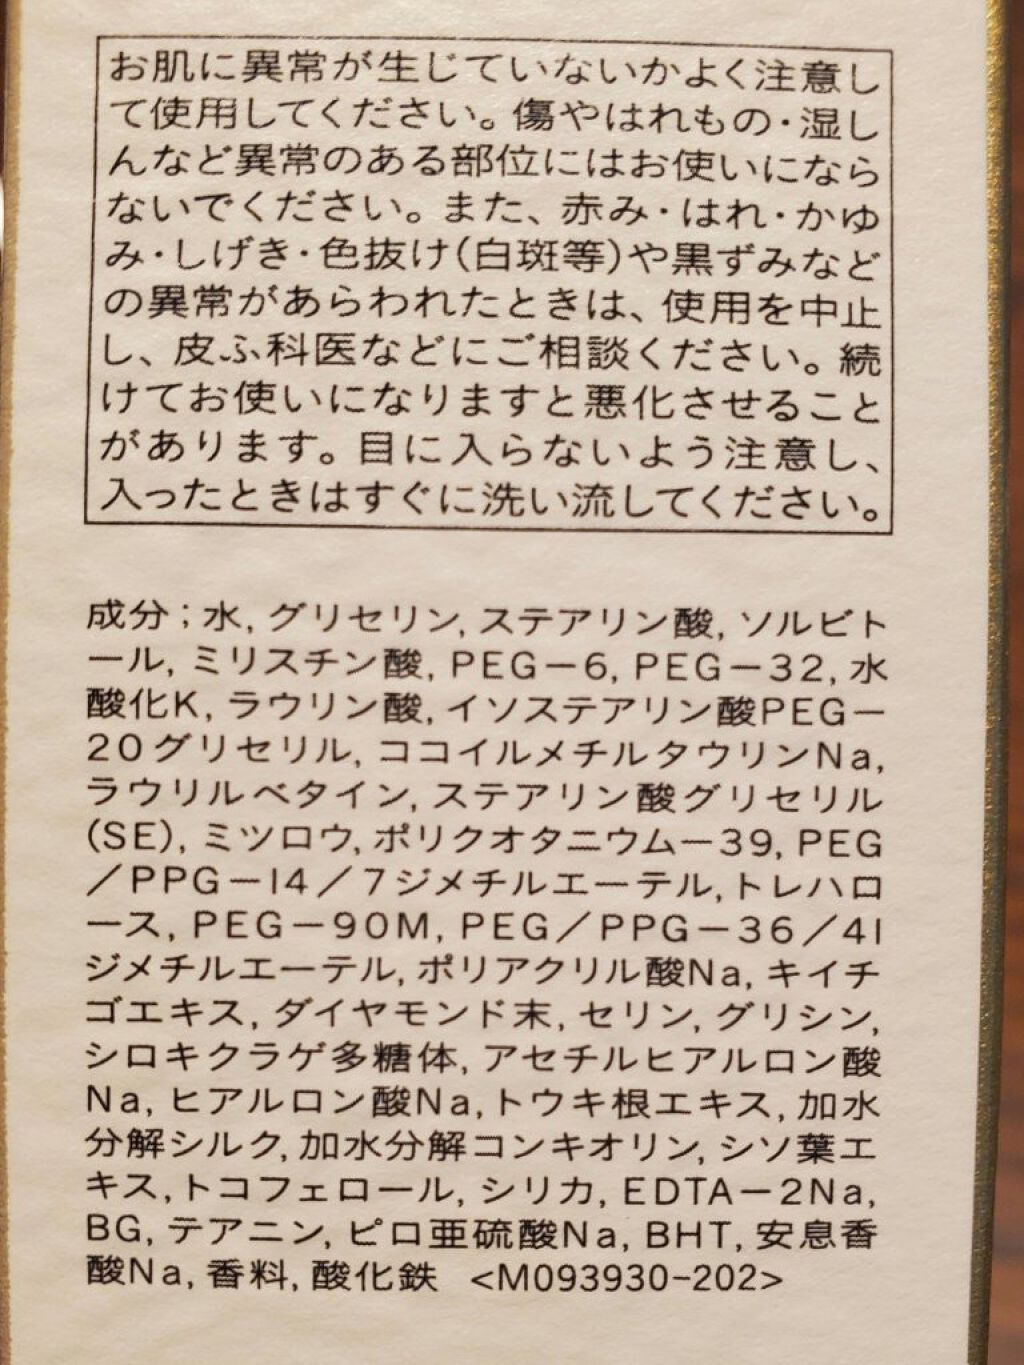 お肌に異常が生じていないかよく注意し
て使用してください。傷やはれもの・湿し
んなど異常のある部位にはお使いになら
ないでください。また、赤み・はれ・かゆ
み・しげき・色抜け(白斑等)や黒ずみなど
の異常があらわれたときは、使用を中止
し、皮ふ科医などにご相談ください。続
けてお使いになりますと悪化させること
があります。目に入らないよう注意し、
入ったときはすぐに洗い流してください。
成分;水,グリセリン,ステアリン酸,ソルビト
ール,ミリスチン酸,PEG-6,PEG-32,水
酸化K,ラウリン酸,イソステアリン酸PEG-
20グリセリル,ココイルメチルタウリンNa,
ラウリルベタイン,ステアリン酸グリセリル
(SE),ミツロウ,ポリクオタニウム-39,PEG
/PPG-14/7ジメチルエーテル,トレハロ
ース,PEG-90M,PEG/PPG-36/41
ジメチルエーテル,ポリアクリル酸Na,キイチ
ゴエキス,ダイヤモンド末,セリン,グリシン,
シロキクラゲ多糖体,アセチルヒアルロン酸
Na,ヒアルロン酸Na,トウキ根エキス,加水
分解シルク,加水分解コンキオリン,シソ葉エ
キス,トコフェロール,シリカ,EDTA-2Na,
BG,テアニン,ピロ亜硫酸Na,BHT,安息香
酸Na,香料,酸化鉄 <M093930-202>